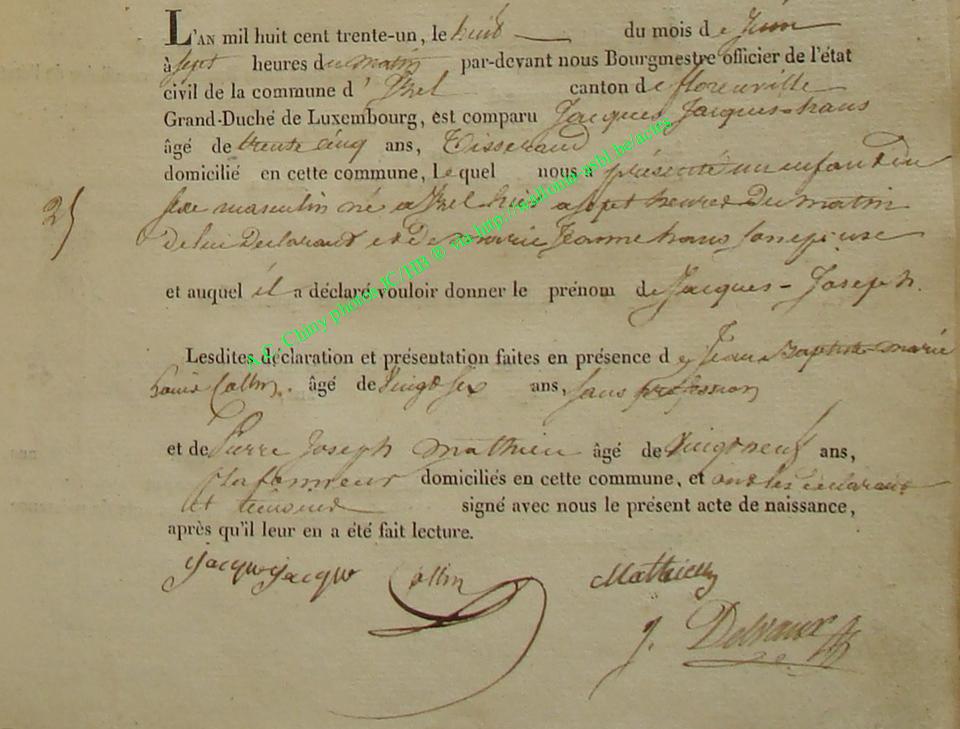 L'AN mil huit cent trente-un, le huit du mois de Juin
à sept heures du matin par-devant nous Bourgmestre officier de l'état
civil de la commune d'Izel canton de florenville
Grand-Duché de Luxembourg, est comparu Jacques Jacques-hans
âgé de trente cinq ans, Tisserand
domicilié en cette commune, Lequel nous a présenté un enfant du
sexe masculin né a Izel hier a sept heures du matin
de lui Declarant et de marie Jeanne hans son epouse
25
et auquel il a déclaré vouloir donner le prénom de Jacques-Joseph.
Lesdites déclaration et présentation faites en présence de Jean Baptiste marie
Louis Collin. âgé de vingt six ans, sans profession
et de Pierre Joseph mathieu âgé de vingt neuf ans,
plafonneur domiciliés en cette commune, et ont les déclarant
et temoins signé avec nous le présent acte de naissance,
après qu'il leur en a été fait lecture.
Jacque Jacque Collin Mathieu
J. Delvaux
A.C. Chiny photos JC/HB © via http://walloux-asbl.be/actes